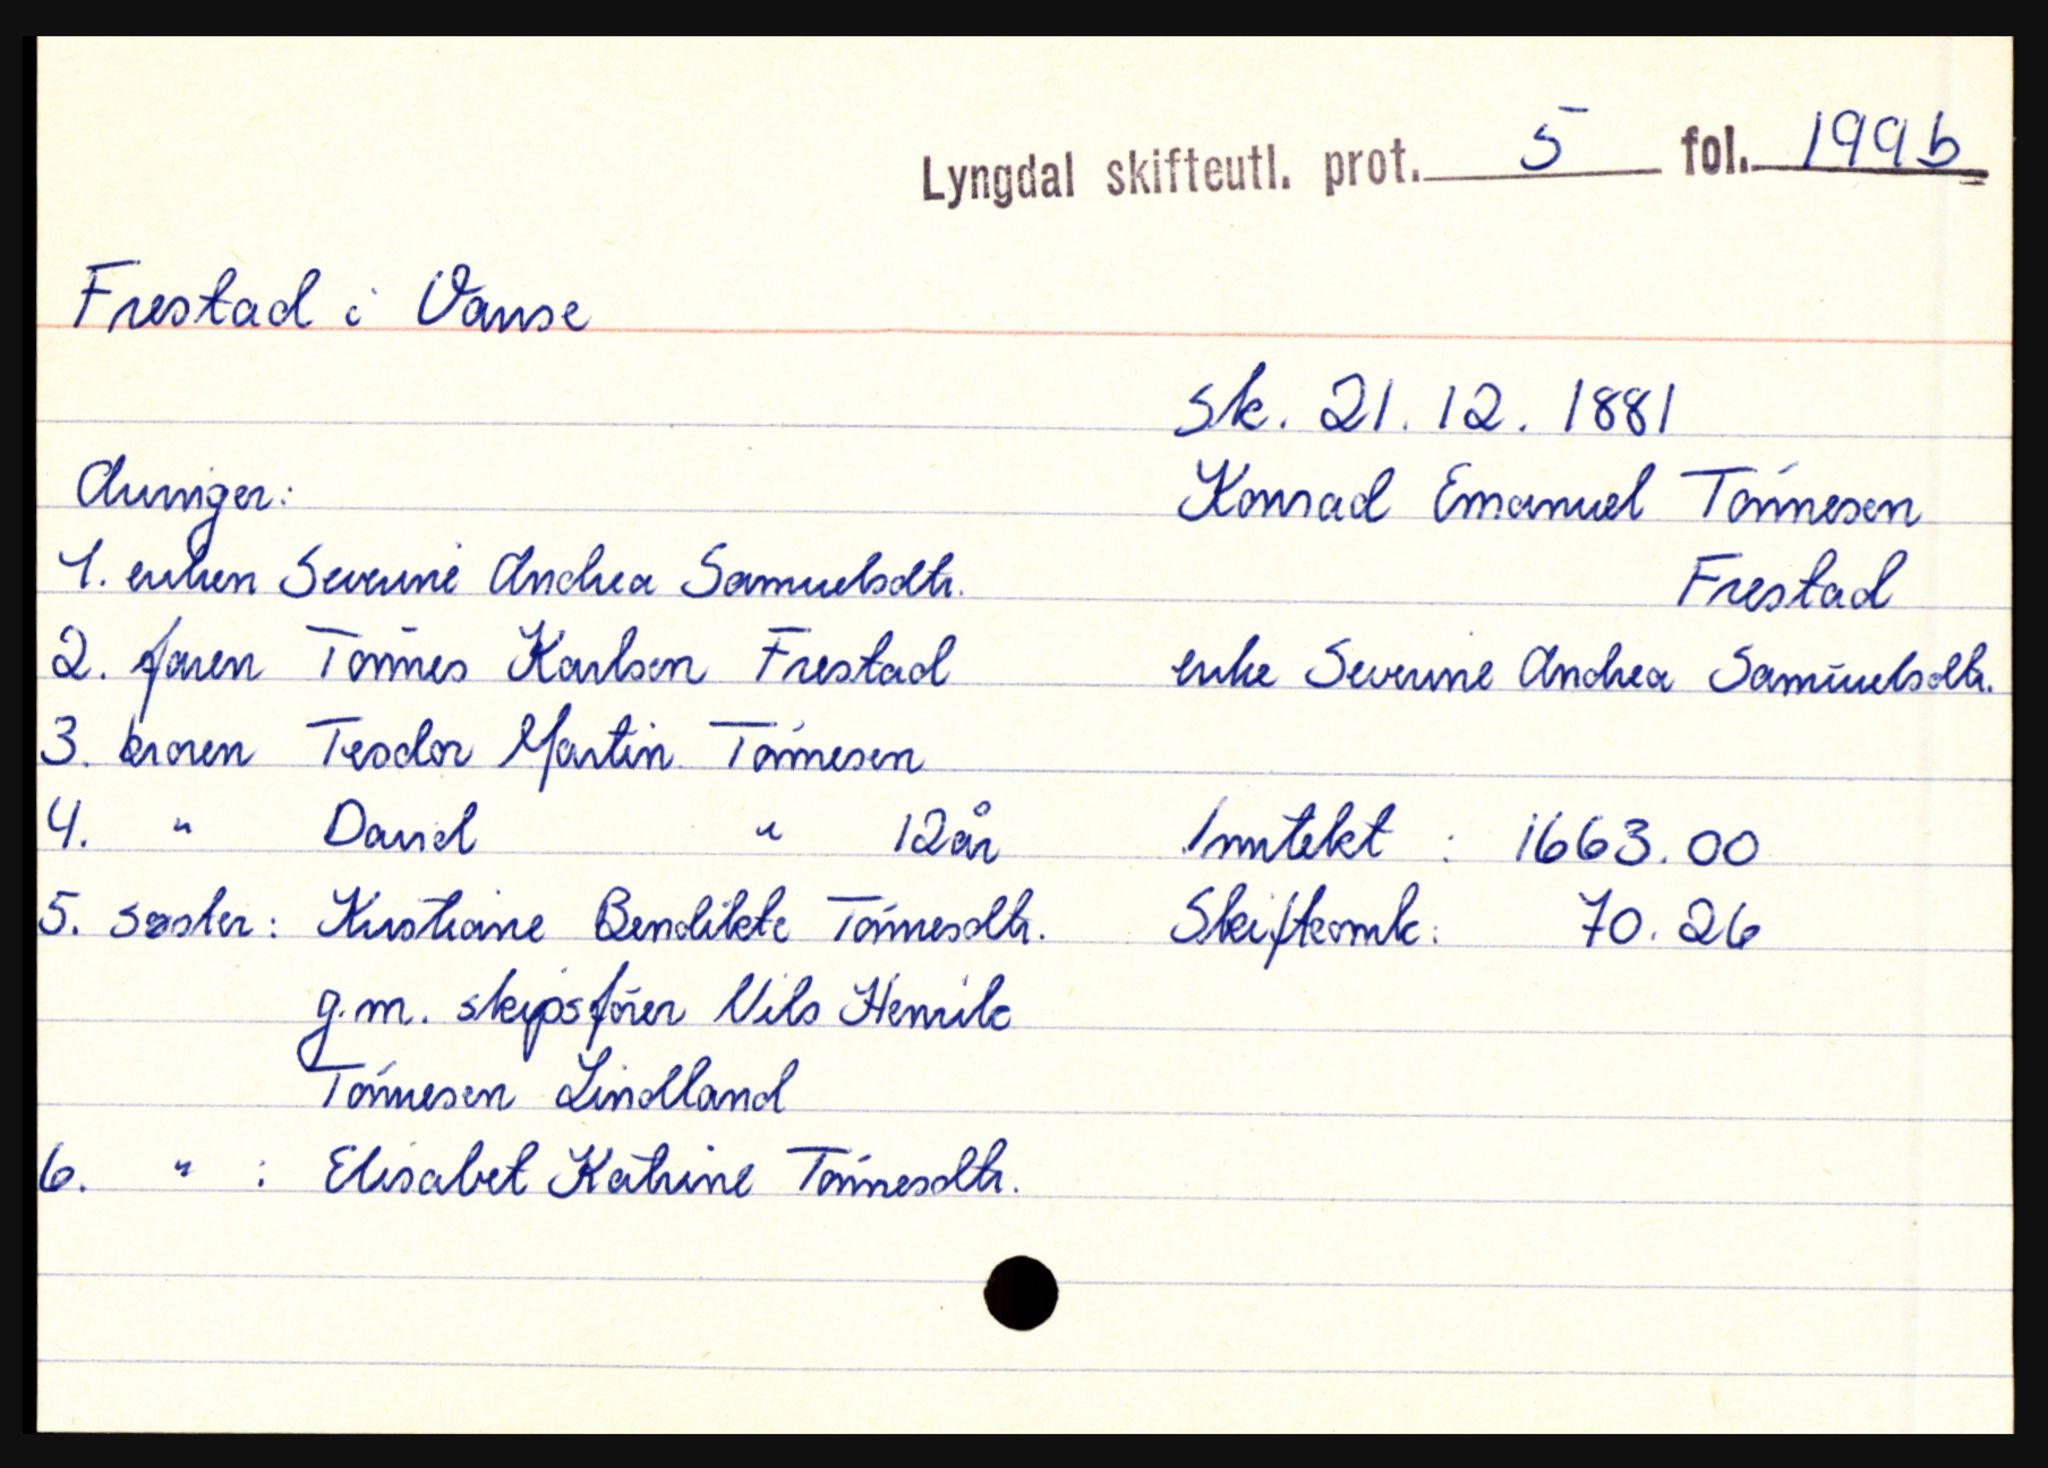 Lyngdal skifteutl. prot. 5 fol. 199b
Frestad i Vanse
sk. 21.12.1881
Konrad Emanuel Tönnesen
Frestad
enke Severine Andrea Samuelsdtr.
Inntekt : 1663.00
Skifteomk: 70.26
Arvinger:
1. enken Severine Andrea Samuelsdtr.
2. faren Tönnes Karlsen Frestad
3. broren Teodor Martin Tönnesen
4. " David " 12 år
5. søster: Kristiane Bendikte Tönnesdtr.
g.m. skipsförer Nils Henrik
Tönnesen Lindland
6. " : Elisabet Katrine Tönnesdtr.